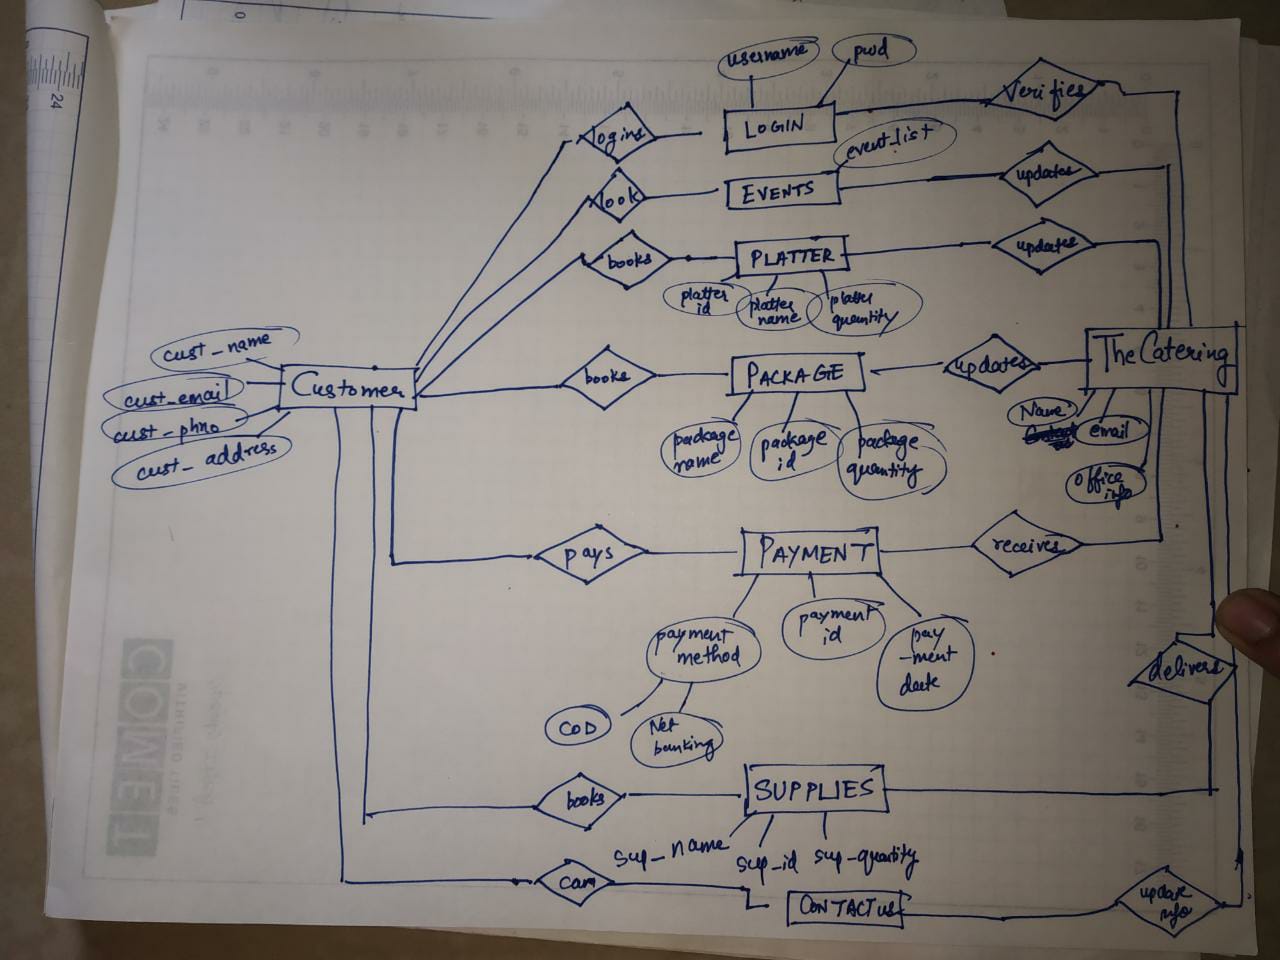 24
username
pwd
verifies
logins
LOGIN
event_list
look
EVENTS
updates
books
PLATTER
updates
platter
id
platter
name
platter
quantity
cust_name
cust_email
cust_phno
cust_address
Customer
books
PACKAGE
updates
The Catering
package
name
package
id
package
quantity
Name
email
office
info
pays
PAYMENT
receives
payment
method
payment
id
pay
-ment
date
COD
Net
banking
delivers
books
SUPPLIES
sup_name
sup_id
sup_quantity
can
CONTACT US
update
info
COMET